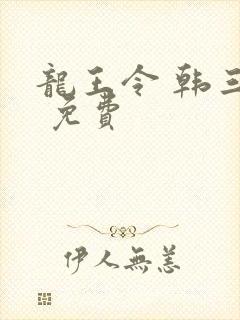 龍王令 韩三
免費
伊人無恙